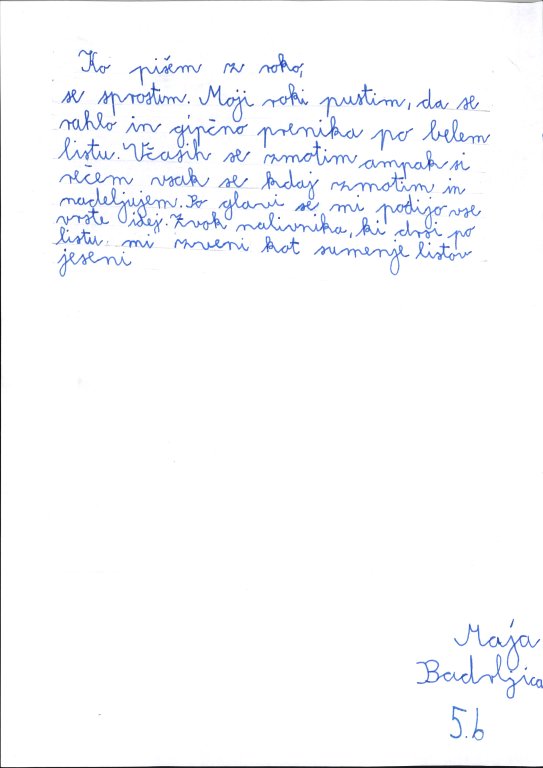 Ko pišem z roko,
se sprostim. Moji roki pustim, da se
rahlo in gipčno premika po belem
listu. Včasih se zmotim ampak si
rečem vsak se kdaj zmotim in
nadeljujem. Po glavi se mi podijo vse
vrste idej. Zvok nalivnika, ki drsi po
listu mi zveni kot šumenje listov
jeseni
Maja
Badnljica
5.b